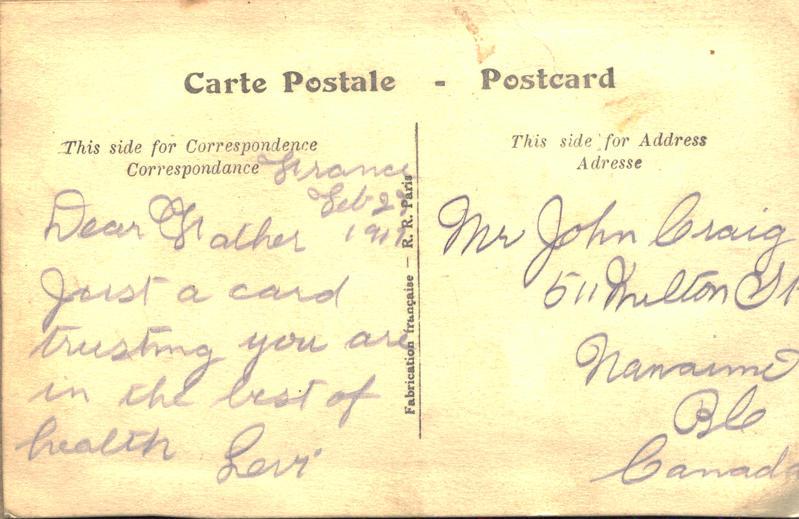 Carte Postale - Postcard
This side for Correspondence
Correspondance
France
Feb
Dear Father
Just a card
trusting you are
in the best of
health
Levi
Fabrication française — R. R. Paris
This side for Address
Adresse
Mr John Craig
511 Milton St
Nanaimo
BC
Canada